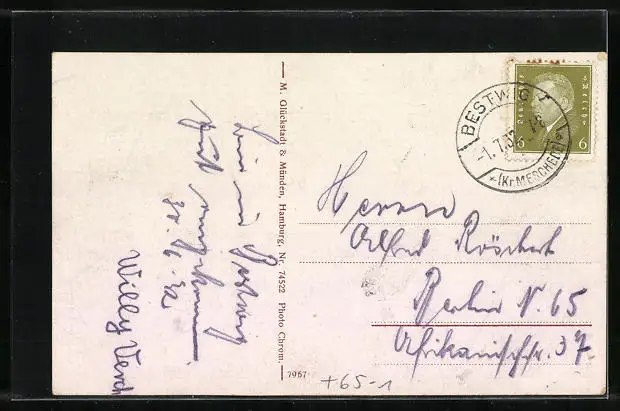 bin in Bestwig
gut angekommen
30./6.32.
Willy
M. Glückstadt & Münden, Hamburg, Nr. 74522 Photo Chrom.
7967
BESTWIG
-1.7.32
*(Kr. MESCHEDE)
Deutsches Reich
6 6
Herrn
Alfred
Berlin N. 65
Afrikanischestr. 37
+65-1